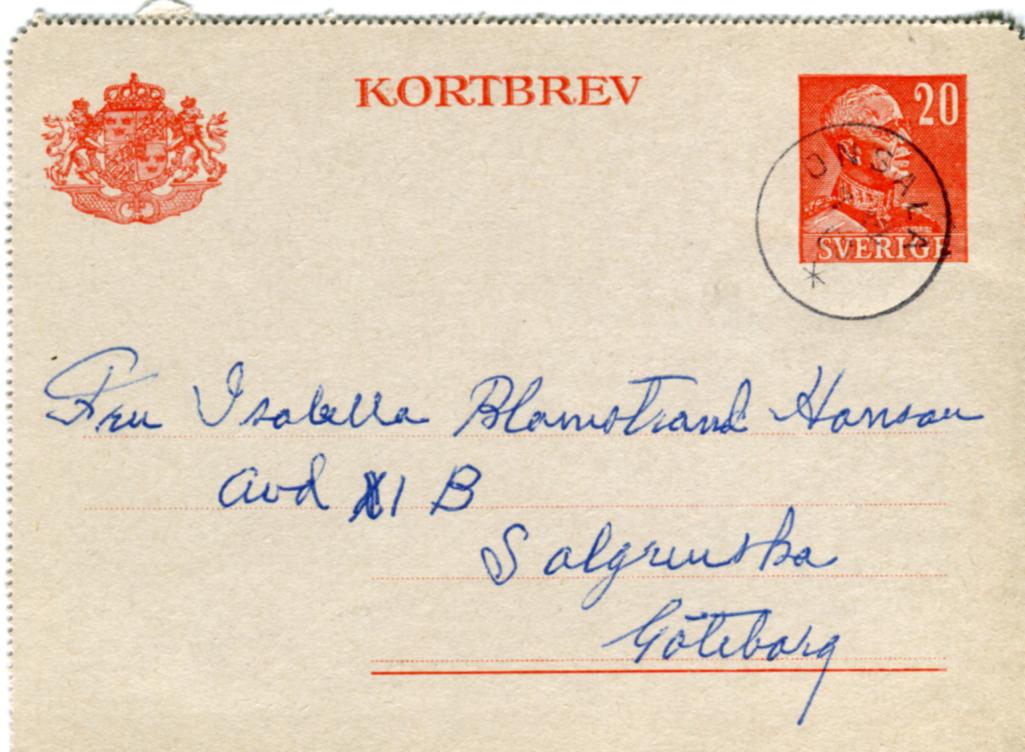 KORTBREV
20
SVERIGE
ONSALA
Fru Isabella Blomstrand Hansson
avd XI B
Salgrenska
Göteborg